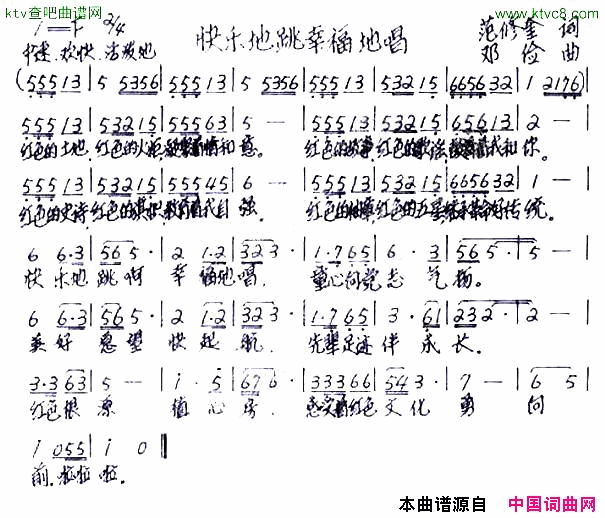 ktv查吧曲谱网
http://www.ktvc8.com
1=F 2/4
中速、欢快、活泼地
快乐地跳幸福地唱
范修奎 词
邓俭 曲
(555 13 | 5 5356 | 555 13 | 5 5356 | 555 13 | 532 15 | 6656 32 | 1 2176)
555 13 | 532 15 | 555 63 | 5 — | 555 13 | 532 15 | 656 13 | 2 — |
红色的土地,红色的火炬, 情和意。 红色的故事,红色的歌谣 我和你。
555 13 | 532 15 | 555 45 | 6 — | 555 13 | 532 15 | 6656 32 | 1 — |
红色的史诗,红色的旗帜 代自强。 红色的 红色的五星 好传统。
6 6·3 | 565· | 2 1·2 | 323· | 1·765 | 6·3 | 565· | 5 — |
快乐地跳啊 幸福地唱, 童心向党志气扬。
6 6·3 | 565· | 2 1·2 | 323· | 1·765 | 3·61 | 232· | 2 — |
美好愿望快起航, 先辈足迹伴成长。
3·3 63 | 5 — | 1·5 | 676· | 333 66 | 543· | 7 — | 6 5
红色根源 植心房, 红色文化勇向
1 055 | 1 0 ‖
前,啦啦啦。
本曲谱源自 中国词曲网